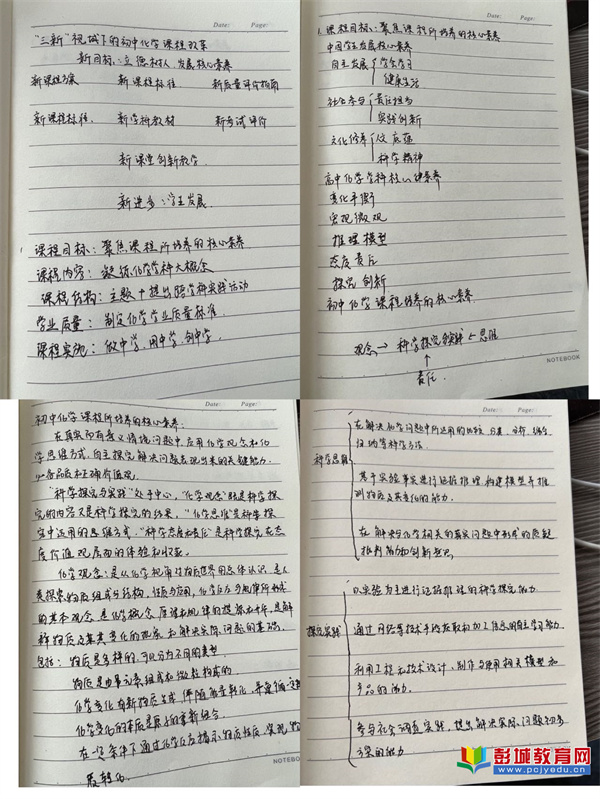 Date: Page:
“三新”视域下的初中化学课程改革
新目标:立德树人、发展核心素养
新课程方案 新课程标准 新质量评价指南
新课程标准、 新学科教材 新考试评价
新课堂创新教学
新进步:学生发展
课程目标:聚焦课程所培养的核心素养
课程内容:凝练化学学科大概念
课程结构:主题+提出跨学科实践活动
学业质量:制定化学学业质量标准
课程实施:做中学、用中学、创中学
Date: Page:
1.课程目标:聚焦课程所培养的核心素养
中国学生发展核心素养
自主发展 学会学习
健康生活
社会参与 责任担当
实践创新
文化修养 人文底蕴
科学精神
高中化学学科核心素养
变化平衡
宏观微观
推理模型
态度责任
探究创新
初中化学课程培养的核心素养
观念→科学探究与实践←思维
↑
责任
NOTEBOOK
Date: Page:
初中化学课程所培养的核心素养:
在真实而有意义情境问题中,应用化学观念和化
学思维方式,自主探究解决问题表现出来的关键能力、
必备品质和正确价值观。
“科学探究与实践”处于中心,“化学观念”既是科学探
究的内容又是科学探究的结果,“化学思维”是科学探
究中运用的思维方式,“科学态度和责任”是科学探究在态
度价值观层面的体验和收获。
化学观念:是从化学视角对物质世界的总体认识,是人
类探索物质组成与结构、性质与应用,化学反应与规律所形成
的基本观念,是化学概念、原理和规律的提炼和升华,是解
释物质及其变化的现象和解决实际问题的基础。
包括:物质是多样的,可以分为不同的类型
物质是由元素组成和微粒构成的
化学变化有新物质生成,伴随能量转化,并遵循一定规
化学变化的本质是原子的重新组合
在一定条件下通过化学反应揭示物质性质,实现物
质转化。
NOTEBOOK
Date: Page:
科学思维
在解决化学问题中所运用的比较、分类、分析、综合
归纳等科学方法
基于实验事实进行证据推理、构建模型并推
测物质及其变化的能力。
在解决与化学相关的真实问题中形成的质疑
批判能力和创新意识
探究实践
以实验为主进行证据推理的科学探究能力
通过网络等技术手段获取和加工信息的自主学习能力。
利用工程和技术设计,制作与使用相关模型和
产品的能力。
参与社会调查实践,提出解决实际问题初步
方案的能力
彭城教育网
www.pcjyedu.cn